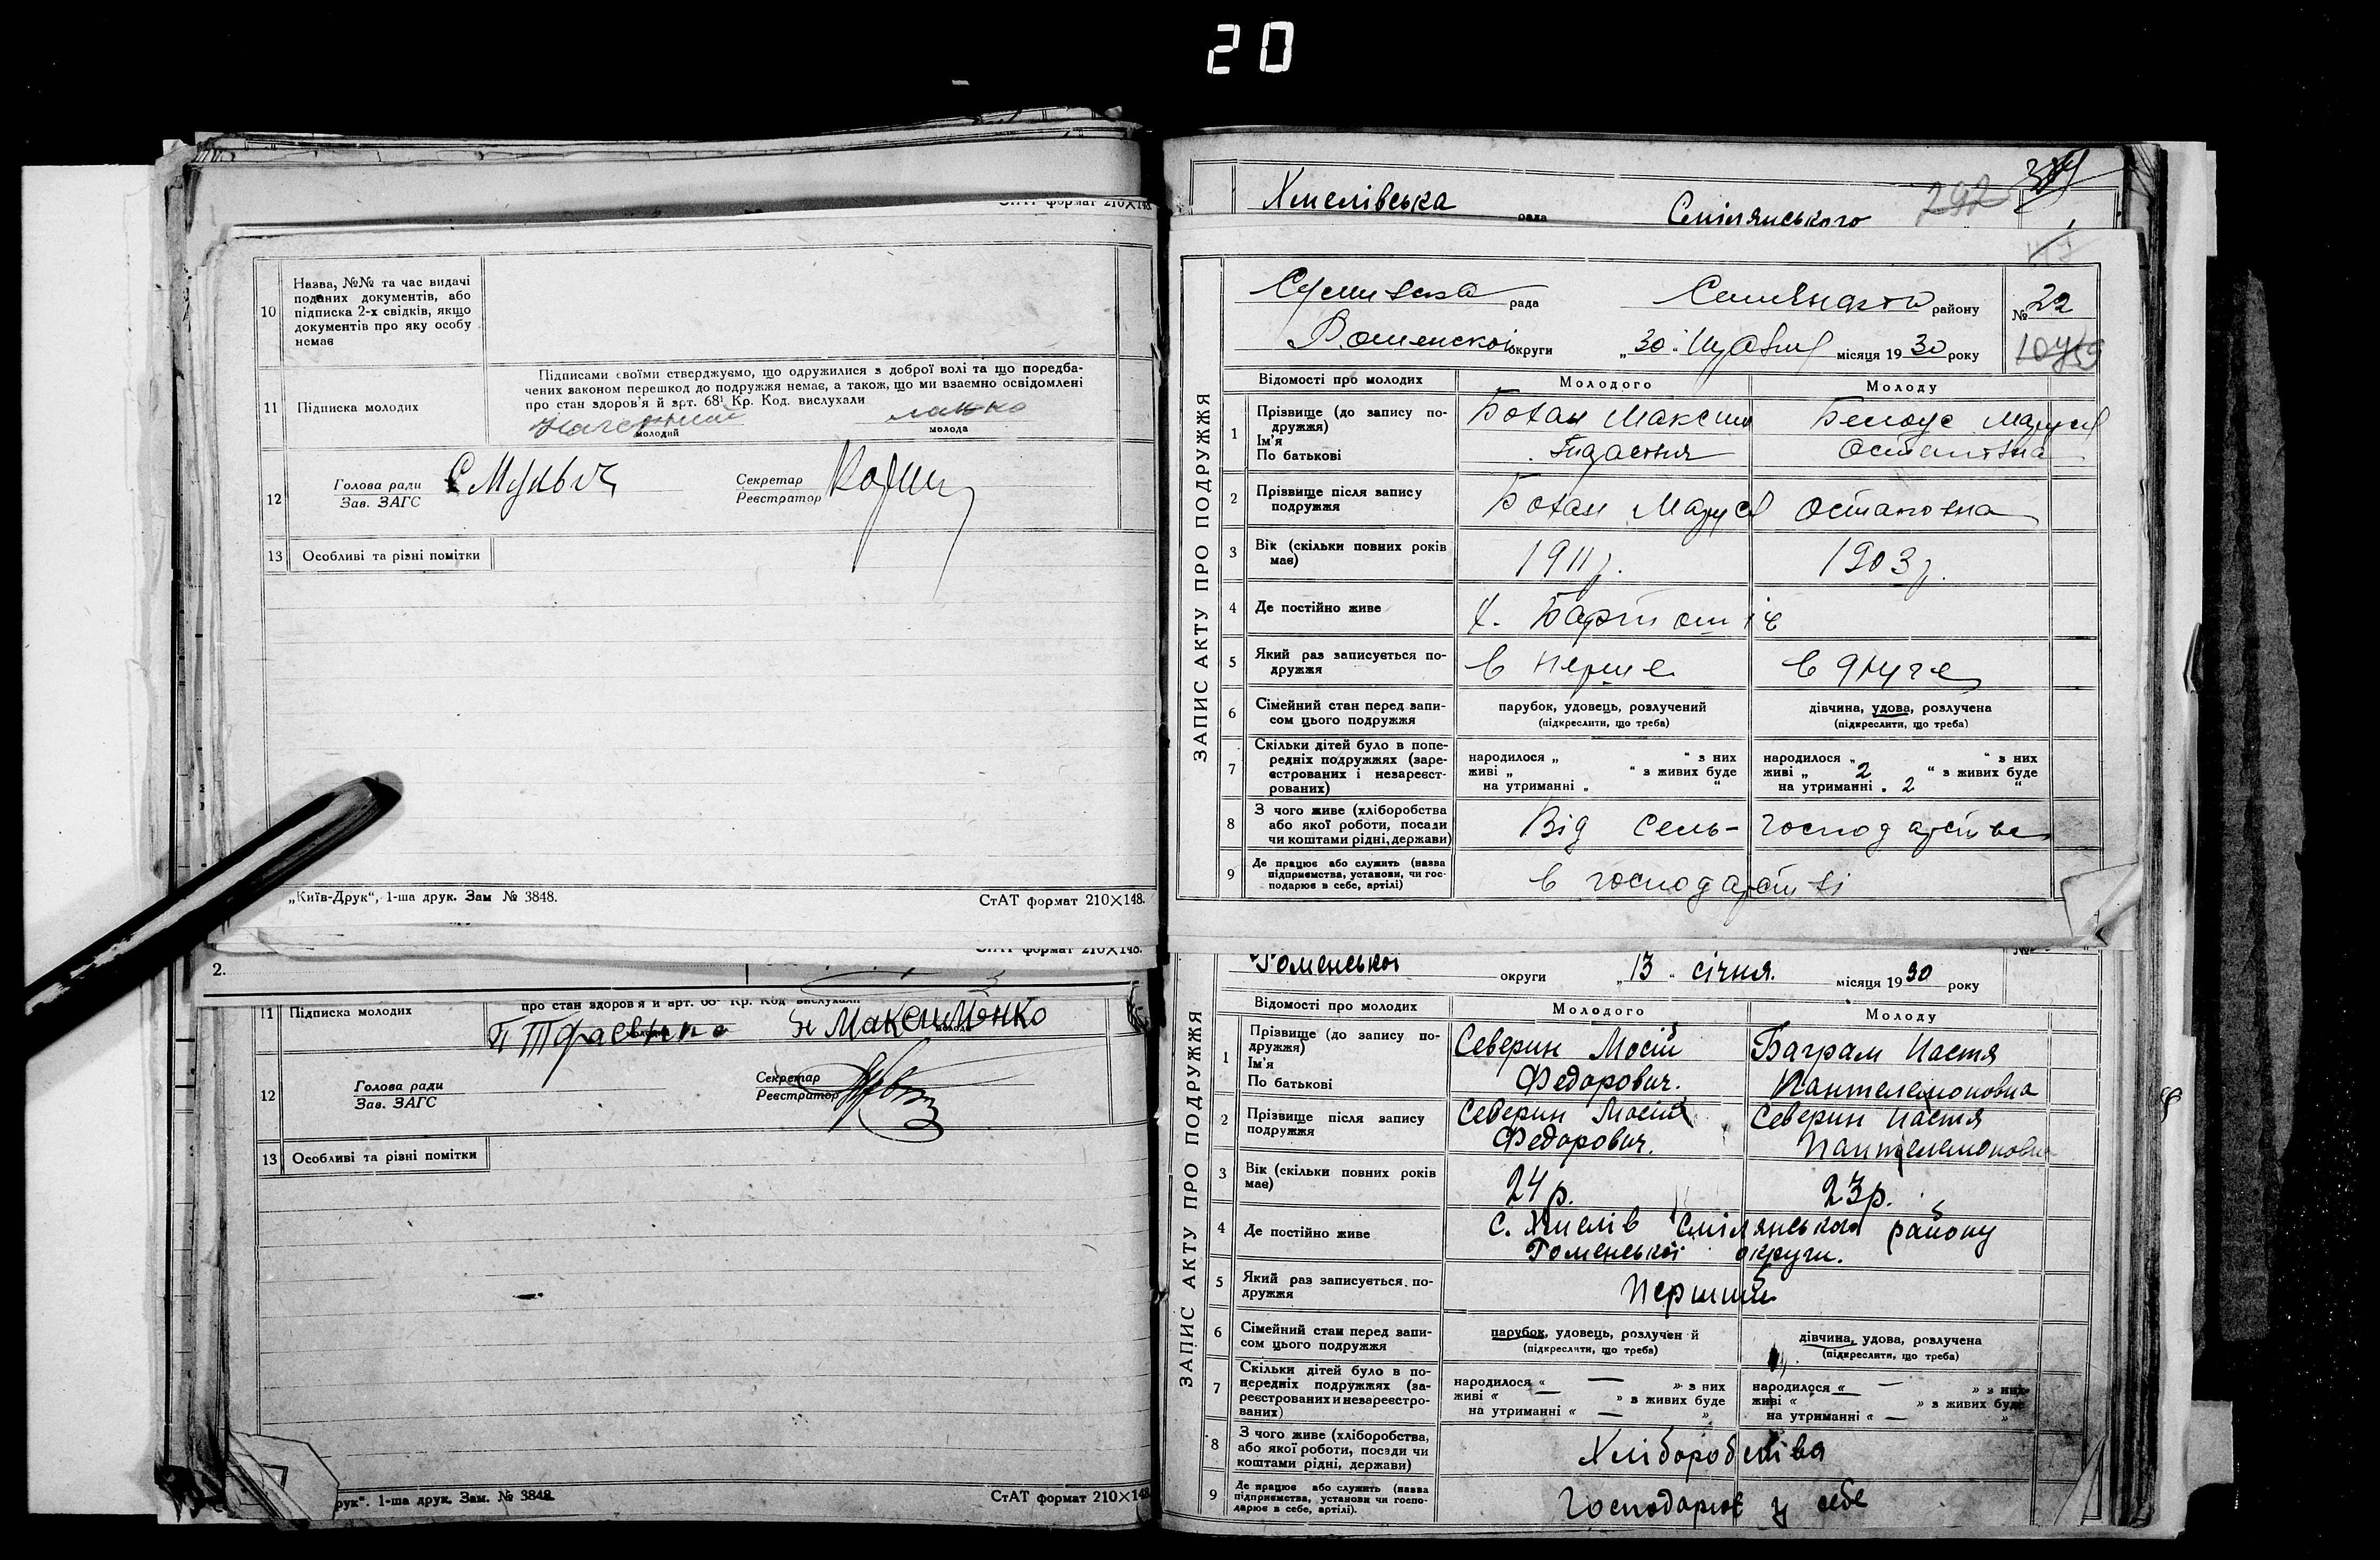 20
СтАТ формат 210×148
10 Назва, №№ та час видачі
поданих документів, або
підписка 2-х свідків, якщо
документів про яку особу
немає
Підписами своїми стверджуємо, що одружилися з доброї волі та що передба-
чених законом перешкод до подружжя немає, а також, що ми взаємно освідомлені
про стан здоров'я й арт. 68¹ Кр. Код. вислухали
11 Підписка молодих
молодий молода
12 Голова ради Секретар
Зав. ЗАГС Реєстратор
13 Особливі та різні помітки
„Київ-Друк“, 1-ша друк. Зам № 3848. СтАТ формат 210×148.
СтАТ формат 210×148.
2.
про стан здоров'я й арт. 68¹ Кр. Код вислухали
11 Підписка молодих Максименко
12 Голова ради Секретар
Зав. ЗАГС Реєстратор
13 Особливі та різні помітки
рук“. 1-ша друк. Зам. № 3848 СтАТ формат 210×148
Хмелівська рада Смілянського 292
ЗАПИС АКТУ ПРО ПОДРУЖЖЯ
рада району № 22
округи „30“ місяця 1930 року
Відомості про молодих Молодого Молоду
1 Прізвище (до запису по-
дружжя)
Ім'я
По батькові
Максим
2 Прізвище після запису
подружжя
Маруся Остаповна
3 Вік (скільки повних років
має)
1911 р. 1903 р.
4 Де постійно живе
х.
5 Який раз записується по-
дружжя
в перше в друге
6 Сімейний стан перед запи-
сом цього подружжя
парубок, удовець, розлучений дівчина, удова, розлучена
(підкреслити, що треба) (підкреслити, що треба)
7 Скільки дітей було в попе-
редніх подружжях (заре-
єстрованих і незареєст-
рованих)
народилося „ “ з них народилося „ “ з них
живі „ “ з живих буде живі „ 2 “ з живих буде
на утриманні „ “ на утриманні „ 2 “
8 З чого живе (хліборобства
або якої роботи, посади
чи коштами рідні, держави)
Від сель-господарства
9 Де працює або служить (назва
підприємства, установи, чи гос-
подарює в себе, артілі)
в господарстві
ЗАПИС АКТУ ПРО ПОДРУЖЖЯ
Роменської округи „13“ січня. місяця 1930 року
Відомості про молодих Молодого Молоду
1 Прізвище (до запису по-
дружжя)
Ім'я
По батькові
Северин Мосій Баграм Настя
Федорович. Пантелемоновна
2 Прізвище після запису
подружжя
Северин Мосій Северин Настя
Федорович. Пантелемоновна
3 Вік (скільки повних років
має)
24 р. 23 р.
4 Де постійно живе
с. Хмелів Смілянського району
Роменської округи.
5 Який раз записується по-
дружжя
перший
6 Сімейний стан перед запи-
сом цього подружжя
парубок, удовець, розлучен й дівчина, удова, розлучена
(підкреслити, що треба) (підкреслити, що треба)
7 Скільки дітей було в по-
передніх подружжях (за-
реєстрованих и незареєстро-
ваних)
народилося « — » з них народилося « — » з них
живі « — » з живих буде живі « » з живих буде
на утриманні « — » на утриманні « — »
8 З чого живе (хліборобства,
або якої роботи, посади чи
коштами рідні, держави)
Хліборобства
9 Де працює або служить (назва
підприємства, установи чи госпо-
дарює в себе, артілі).
Господарює у себе